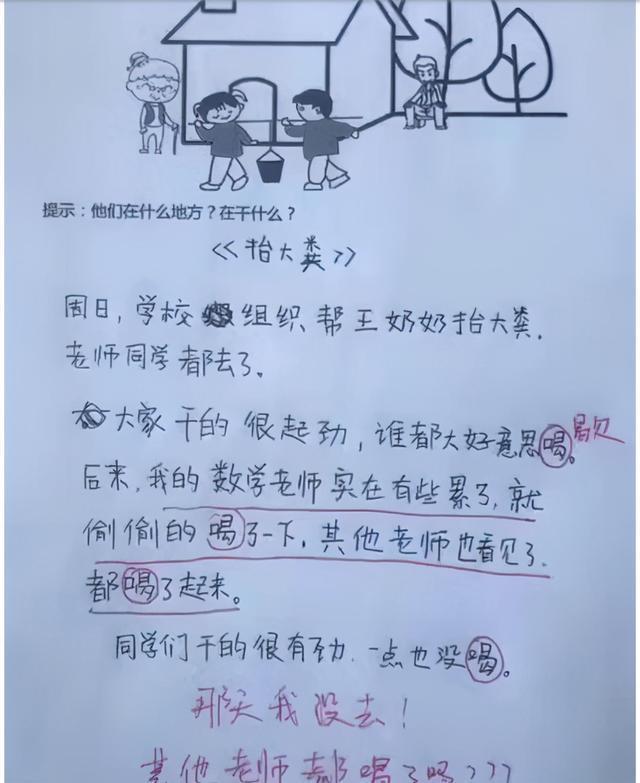 提示：他们在什么地方？在干什么？
《抬大粪》
周日，学校组织帮王奶奶抬大粪．
老师同学都去了．
大家干的很起劲，谁都大好意思喝。歇
后来．我的数学老师实在有些累了，就
偷偷的喝了一下．其他老师也看见了．
都喝了起来。
同学们干的很有劲．一点也没喝。
那天我没去！
其他老师都喝了吗？？？